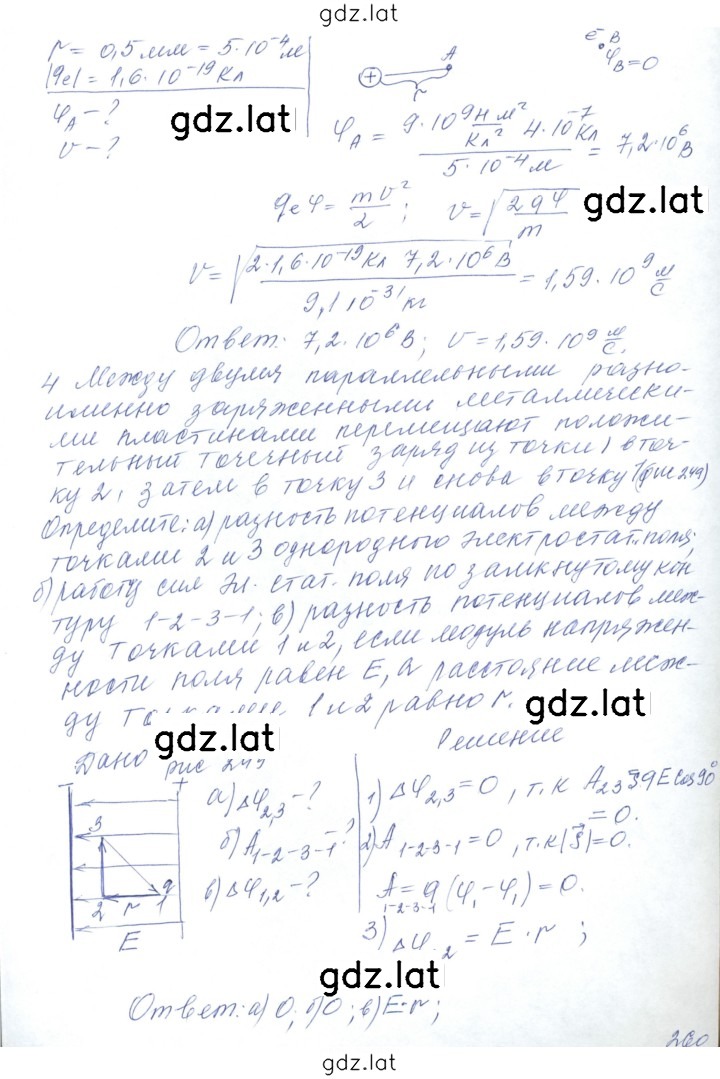 gdz.lat
r = 0,5 мм = 5·10⁻⁴ м
|qe| = 1,6·10⁻¹⁹ Кл
φA - ?
v - ?
gdz.lat
+ A r
e⁻ B
φB = 0
φA = 9·10⁹ Н м²/Кл² 4·10⁻⁷ Кл / 5·10⁻⁴ м = 7,2·10⁶ В
qe φ = mv²/2 ; v = √(2qφ/m)
gdz.lat
v = √(2·1,6·10⁻¹⁹ Кл 7,2·10⁶ В / 9,1 10⁻³¹ кг) = 1,59·10⁹ м/с
Ответ: 7,2·10⁶ В; v = 1,59·10⁹ м/с.
4 Между двумя параллельными разно-
именно заряженными металлически-
ми пластинами перемещают положи-
тельный точечный заряд из точки 1 в точ-
ку 2, затем в точку 3 и снова в точку 1 (рис 249)
Определите: а) разность потенциалов между
точками 2 и 3 однородного электростат. поля;
б) работу сил эл. стат. поля по замкнутому кон
туру 1-2-3-1; в) разность потенциалов меж-
ду точками 1 и 2, если модуль напряжен-
ности поля равен E, а расстояние меж-
ду 1 и 2 равно r.
gdz.lat
gdz.lat
Дано рис 249
Решение
- +
3 2 r 1 q
E
а) Δφ2,3 - ?
б) A1-2-3-1 - ?
в) Δφ1,2 - ?
1) Δφ2,3 = 0, т.к A23 = qE cos 90°
= 0.
2) A1-2-3-1 = 0, т.к |S⃗| = 0.
A1-2-3-1 = q(φ1 - φ1) = 0.
3) Δφ 2 = E·r ;
gdz.lat
Ответ: а) 0; б) 0; в) E·r;
260
gdz.lat